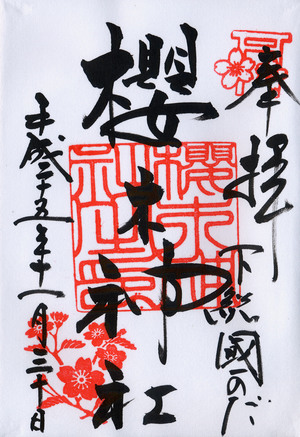 奉拝
下総國のだ
櫻木神社
櫻木神
社之印
平成二十五年十一月三十日